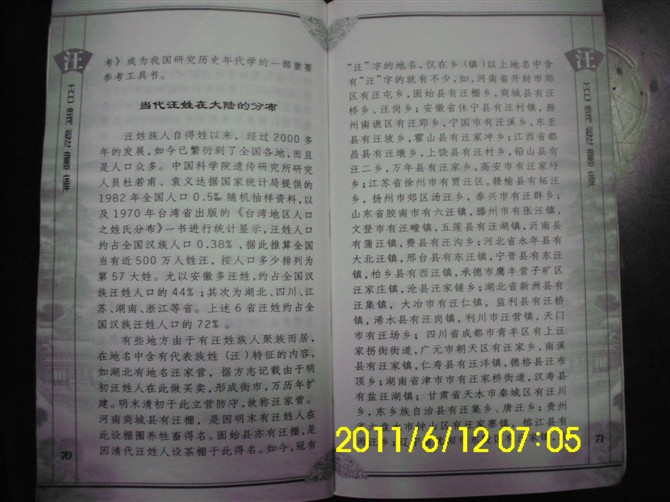 汪
考》成为我国研究历史年代学的一部重要
参考工具书。
当代汪姓在大陆的分布
汪姓族人自得姓以来，经过2000多
年的发展，如今已繁衍到了全国各地，而且
是人口众多。中国科学院遗传研究所研究
人员杜若甫、袁义达据国家统计局提供的
1982年全国人口0.5‰随机抽样资料，以
及1970年台湾省出版的《台湾地区人口
之姓氏分布》一书进行统计显示，汪姓人口
约占全国汉族人口0.38%，据此推算全国
当有近500万人姓汪，按人口多少排列为
第57大姓。尤以安徽多汪姓，约占全国汉
族汪姓人口的44%；其次为湖北、四川、江
苏、湖南、浙江等省。上述6省汪姓约占全
国汉族汪姓人口的72%。
有些地方由于有汪姓族人聚族而居，
在地名中含有代表族姓（汪）特征的内容，
如湖北有地名汪家营，据方志记载由于明
初汪姓人在此做买卖，形成街市，万历年扩
建。明末清初于此立营防守，故称汪家营。
河南商城县有汪棚，是因明末有汪姓人在
此设棚圈养牲畜得名。固始县亦有汪棚，是
因清代汪姓人设茶棚于此得名。如今，冠有
70
“汪”字的地名，仅在乡（镇）以上地名中含
有“汪”字的就有不少，如，河南省开封市郊
区有汪屯乡，固始县有汪棚乡，商城县有汪
桥乡、汪岗乡；安徽省休宁县有汪村镇，滁
州南谯区有汪郢乡，宁国市有汪溪乡，东至
县有汪坡乡，霍山县有汪家冲乡；江西省都
昌县有汪墩乡，上饶县有汪村乡，铅山县有
汪二乡，万年县有汪家乡，高安市有汪家圩
乡；江苏省徐州市有贾汪区，赣榆县有柘汪
乡，扬州市郊区汤汪乡，泰兴市有汪群乡；
山东省胶南市有六汪镇，滕州市有张汪镇，
文登市有汪疃镇，五莲县有汪湖镇，沂南县
有蒲汪镇，费县有汪沟乡；河北省永年县有
大北汪镇，邢台县有东汪镇，宁晋县有东汪
镇，柏乡县有西汪镇，承德市鹰手营子矿区
汪家庄镇，沧县汪家铺乡；湖北省新洲县有
汪集镇，大冶市有汪仁镇，监利县有汪桥
镇，浠水县有汪岗镇，利川市汪营镇，天门
市有汪场乡；四川省成都市青羊区有上汪
家拐街街道，广元市朝天区有汪家乡，南溪
县有汪家镇，仁寿市有汪洋镇，德格县汪布
顶乡；湖南省津市市有汪家桥街道，汉寿县
有盐汪湖镇；甘肃省天水市秦城区有汪川
乡，东乡族自治县有汪集乡、唐汪乡；贵州
71
汪
2011/6/12 07:05